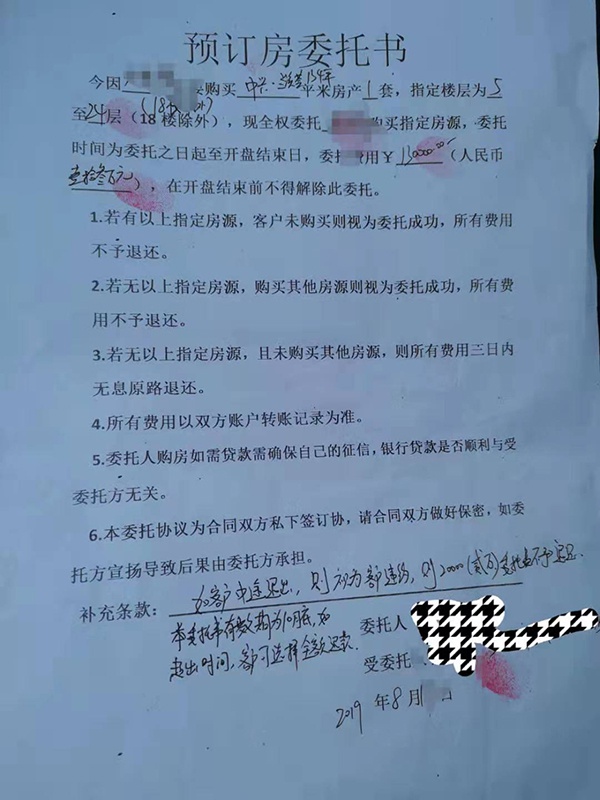 预订房委托书
今因 购买 中 平米房产1套，指定楼层为5
至24层（18楼除外），现全权委托 购买指定房源，委托
时间为委托之日起至开盘结束日，委托费用￥130000.00（人民币
壹拾叁万元），在开盘结束前不得解除此委托。
1.若有以上指定房源，客户未购买则视为委托成功，所有费用
不予退还。
2.若无以上指定房源，购买其他房源则视为委托成功，所有费
用不予退还。
3.若无以上指定房源，且未购买其他房源，则所有费用三日内
无息原路退还。
4.所有费用以双方账户转账记录为准。
5.委托人购房如需贷款需确保自己的征信，银行贷款是否顺利与受
委托方无关。
6.本委托协议为合同双方私下签订协，请合同双方做好保密，如委
托方宣扬导致后果由委托方承担。
补充条款：如客户中途退出，则视为客户违约，则20000（贰万）不予退还.
本委托书有效期为10月底，如 委托人
超出时间，客户可选择全额退款. 受委托
2019 年 8 月